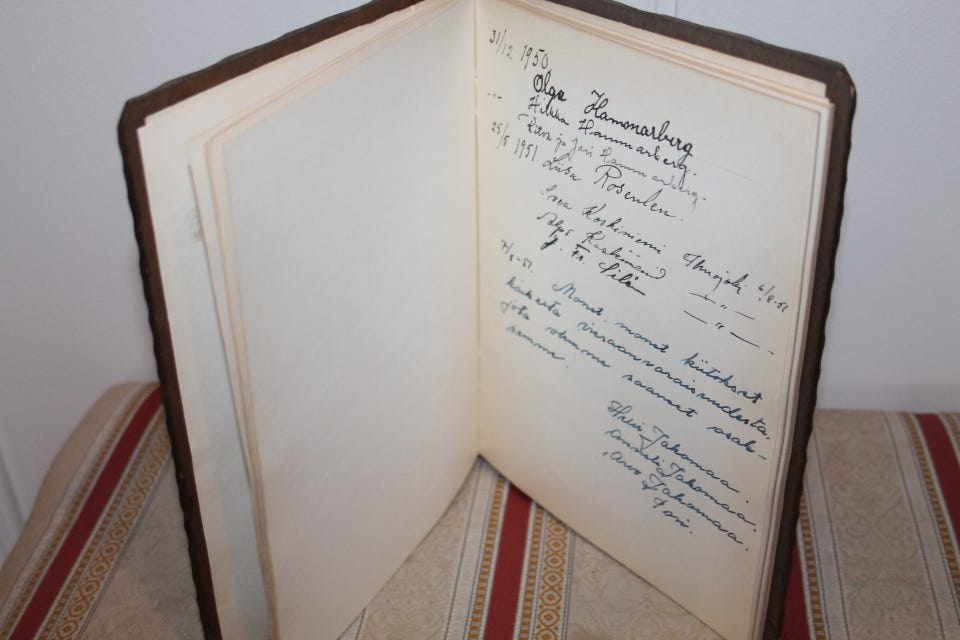 31/12 1950
Olga Hammarberg
" - Hilkka Hammarberg.
Ritva ja Jari Hammarberg.
25/5 1951 Liisa Rosenlen.
Koskiniemi Ilmajoki 6/8-51
Koskiniemi — " —
J. Fr. Silén — " —
7/8-51. Monet, monet kiitokset
kaikesta vieraanvaraisuudesta,
jota olemme saaneet osak-
semme.
Helvi Jakomaa.
Antti Jakomaa.
Arvo Jakomaa.